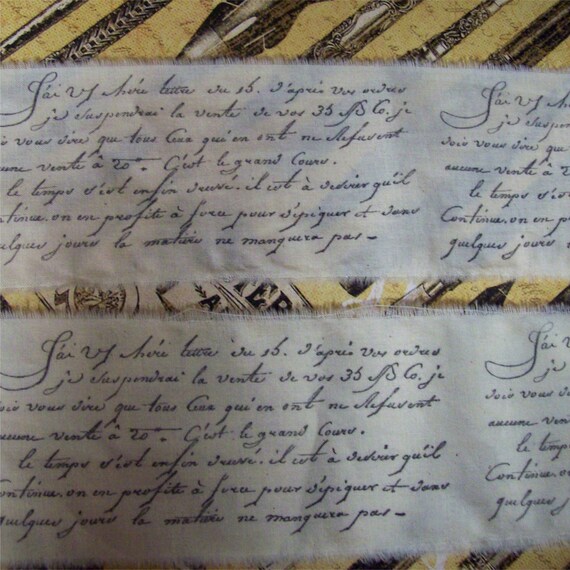 J'ai Vs chére lettre du 15. d'après vos ordres
je suspendrai la vente de vos 35 Co. je
dois vous dire que tous Ceux qui en ont ne Refusent
aucune vente à 20. C'est le grand Cours.
le temps s'est enfin dressé. il est à desirer qu'il
Continue. on en profite à force pour s'epiguer et dans
quelques jours la matière ne manquera pas -
J'ai Vs
je suspen
dois vous dire
aucune vente à 2
le temps s'est
Continue. on en p
quelques jours
J'ai Vs chére lettre du 15. d'après vos ordres
je suspendrai la vente de vos 35 Co. je
dois vous dire que tous Ceux qui en ont ne Refusent
aucune vente à 20. C'est le grand Cours.
le temps s'est enfin dressé. il est à desirer qu'il
Continue. on en profite à force pour s'epiguer et dans
quelques jours la matière ne manquera pas -
J'ai V
je su
dois vous
aucune ven
le temps
Continue. on
quelques jo